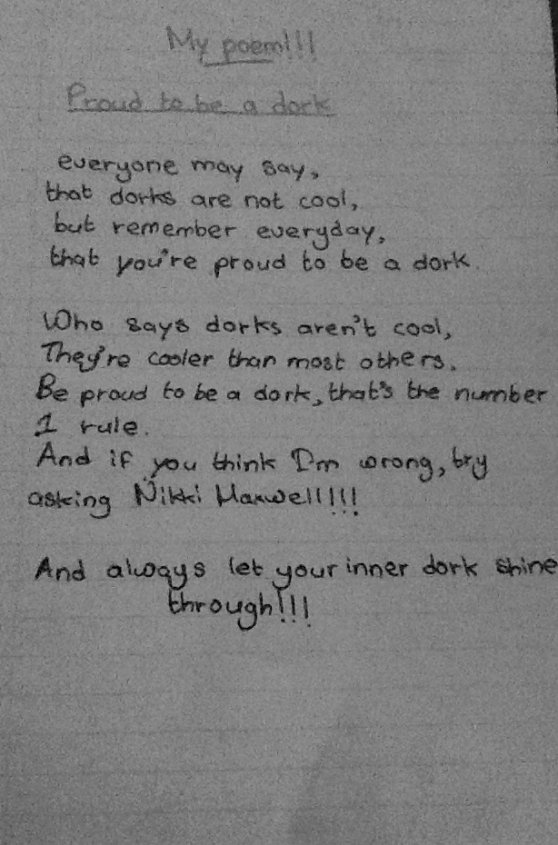 My poem!!!
Proud to be a dork
everyone may say,
that dorks are not cool,
but remember everyday,
that you're proud to be a dork.
Who says dorks aren't cool,
They're cooler than most others.
Be proud to be a dork, that's the number
1 rule.
And if you think I'm wrong, try
asking Nikki Maxwell!!!
And always let your inner dork shine
through!!!